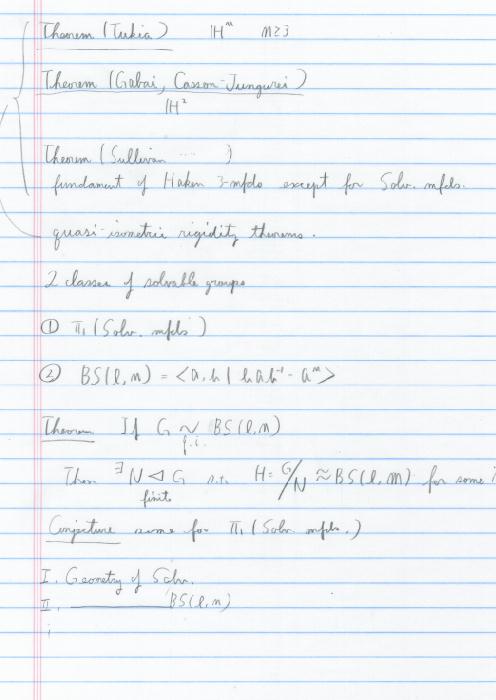 Theorem (Tukia) ℍⁿ n≥3
Theorem (Gabai, Casson-Jungreis)
ℍ²
Theorem (Sullivan ... )
fundament of Haken 3-mfds except for Solv. mfds.
quasi-isometric rigidity theorems.
2 classes of solvable groups
① π₁(Solv. mfds)
② BS(1,n) = <a,b | bab⁻¹=aⁿ>
Theorem If G ~ BS(1,n)
q.i.
Then ∃ N ◁ G s.t. H = G/N ≈ BS(1,m) for some
finite
Conjecture same for π₁(Solv. mfds.)
I. Geometry of Solv.
II. ———— BS(1,n)